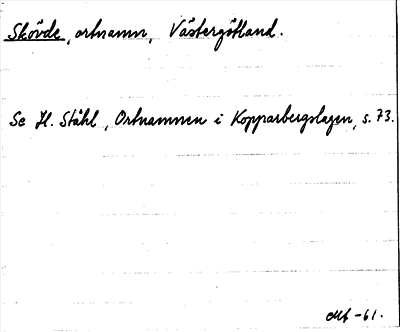 Skövde, ortnamn, Västergötland.
Se H. Ståhl, Ortnamnen i Kopparbergslagen, s. 73.
-61.